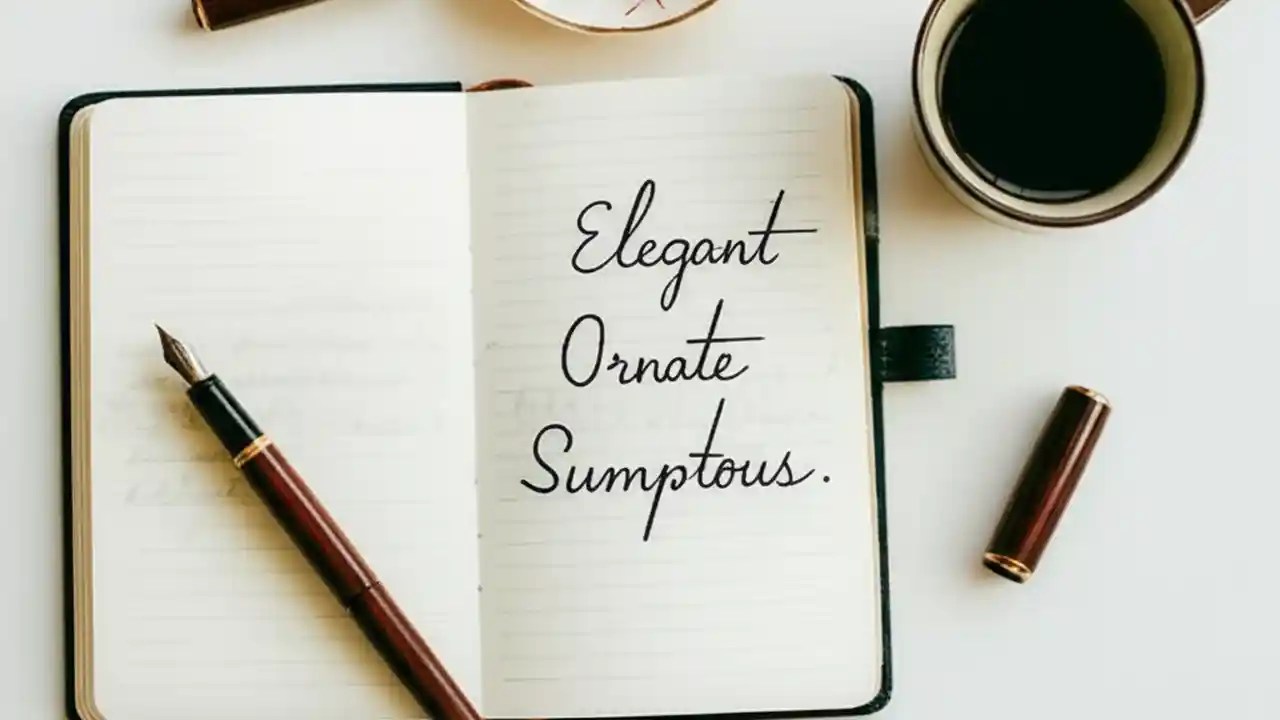 Elegant
Ornate
Sumptous.